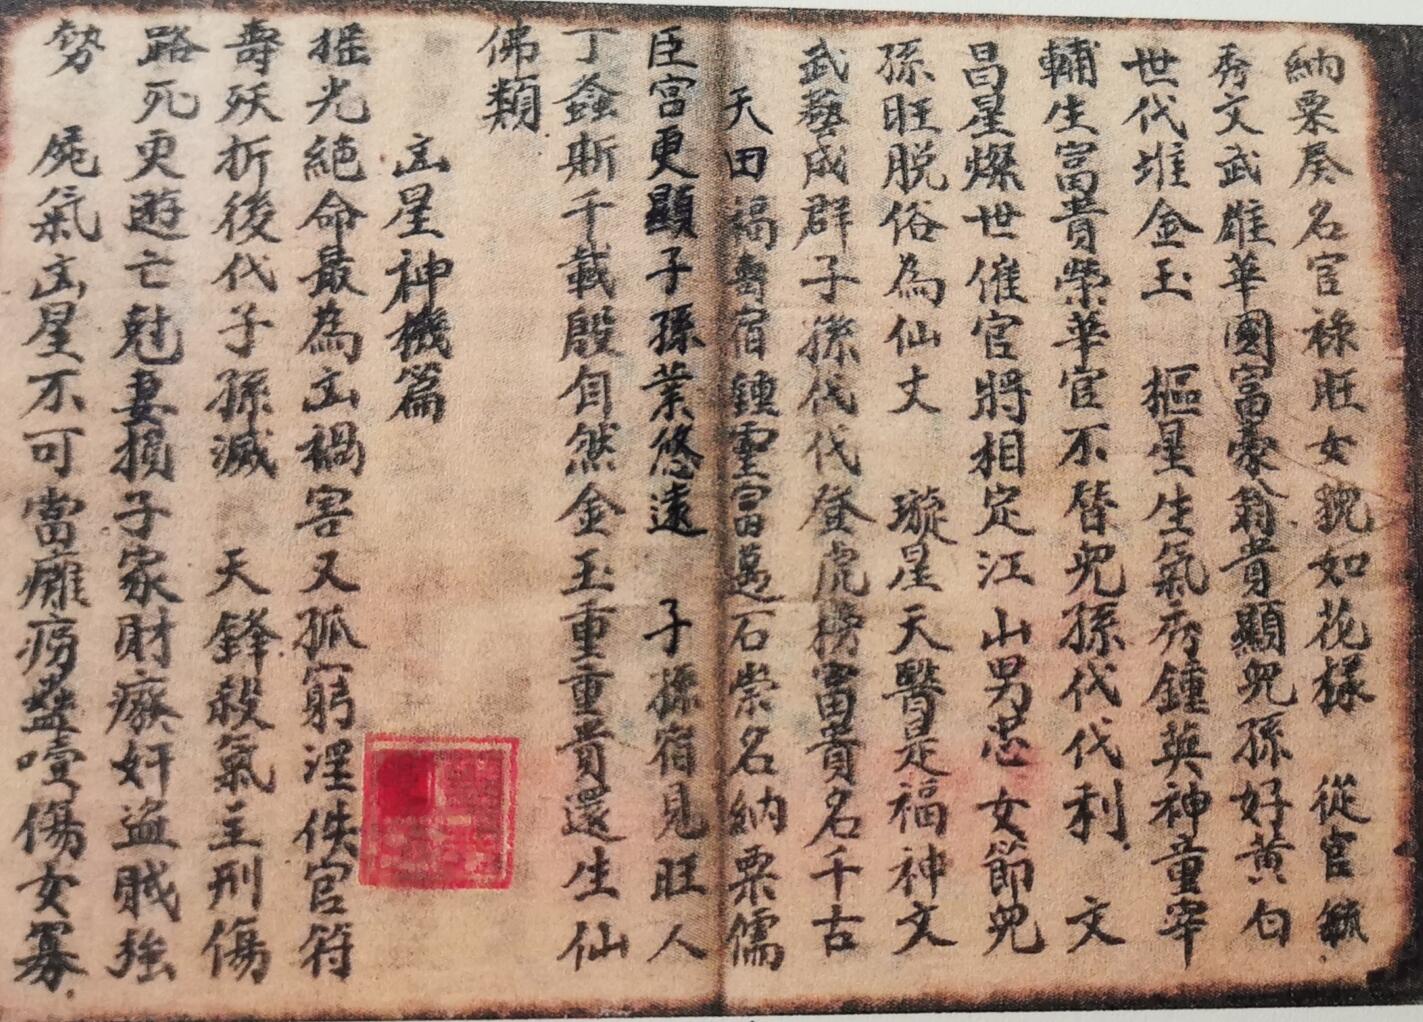 納粟奏名官祿旺女貌如花樣　從官毓
秀文武雄華國富豪翁貴顯兒孫好黃白
世代堆金玉　樞星生氣秀鍾英神童宰
輔生富貴榮華官不替兒孫代代利　文
昌星燦世催官將相定江山男忠女節兒
孫旺脱俗為仙丈　璇星天醫是福神文
武藝成群子孫代代登虎榜富貴名千古
天田福壽宿鍾靈富萬石崇名納粟儒
臣宮更顯子孫業悠遠　子孫宿見旺人
丁螽斯千載殷自然金玉重重貴還生仙
佛類
凶星神機篇
搖光絕命最為凶禍害又孤窮淫佚官符
壽殀折後代子孫滅　天鋒殺氣主刑傷
路死更遊亡尅妻損子家財廢奸盜賊強
勢　屍氣凶星不可當癱癆蠱噎傷女寡